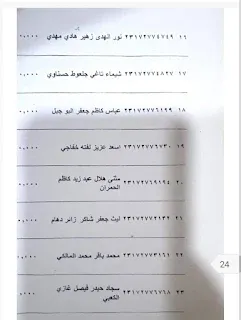 ١٦ ٢٣١٧٢٧٧٤٧٤٩ نور الهدى زهير هادي مهدي ٠,٠٠٠
١٧ ٢٣١٧٢٧٧٤٨٢٧ شيماء ناغي جلعوط حسناوي ٠,٠٠٠
١٨ ٢٣١٧٢٧٧٦١٢٩ عباس كاظم جعفر البو جبل ٠,٠٠٠
١٩ ٢٣١٧٢٧٧٦٧٣٠ اسعد عزيز لفته خفاجي ٠,٠٠٠
٢٠ ٢٣١٧٢٧٦٩١٩٤ مثنى هلال عبد زيد كاظم
الحمران ٠,٠٠٠
٢١ ٢٣١٧٢٧٧٢١٣٢ ليث جعفر شاكر زائر دهام ٠,٠٠٠
٢٢ ٢٣١٧٢٧٧٣١٦١ محمد باقر محمد المالكي ٠,٠٠٠
24
٢٣ ٢٣١٧٢٧٧٦٧٦٨ سجاد حيدر فيصل غازي
الكعبي ٠,٠٠٠